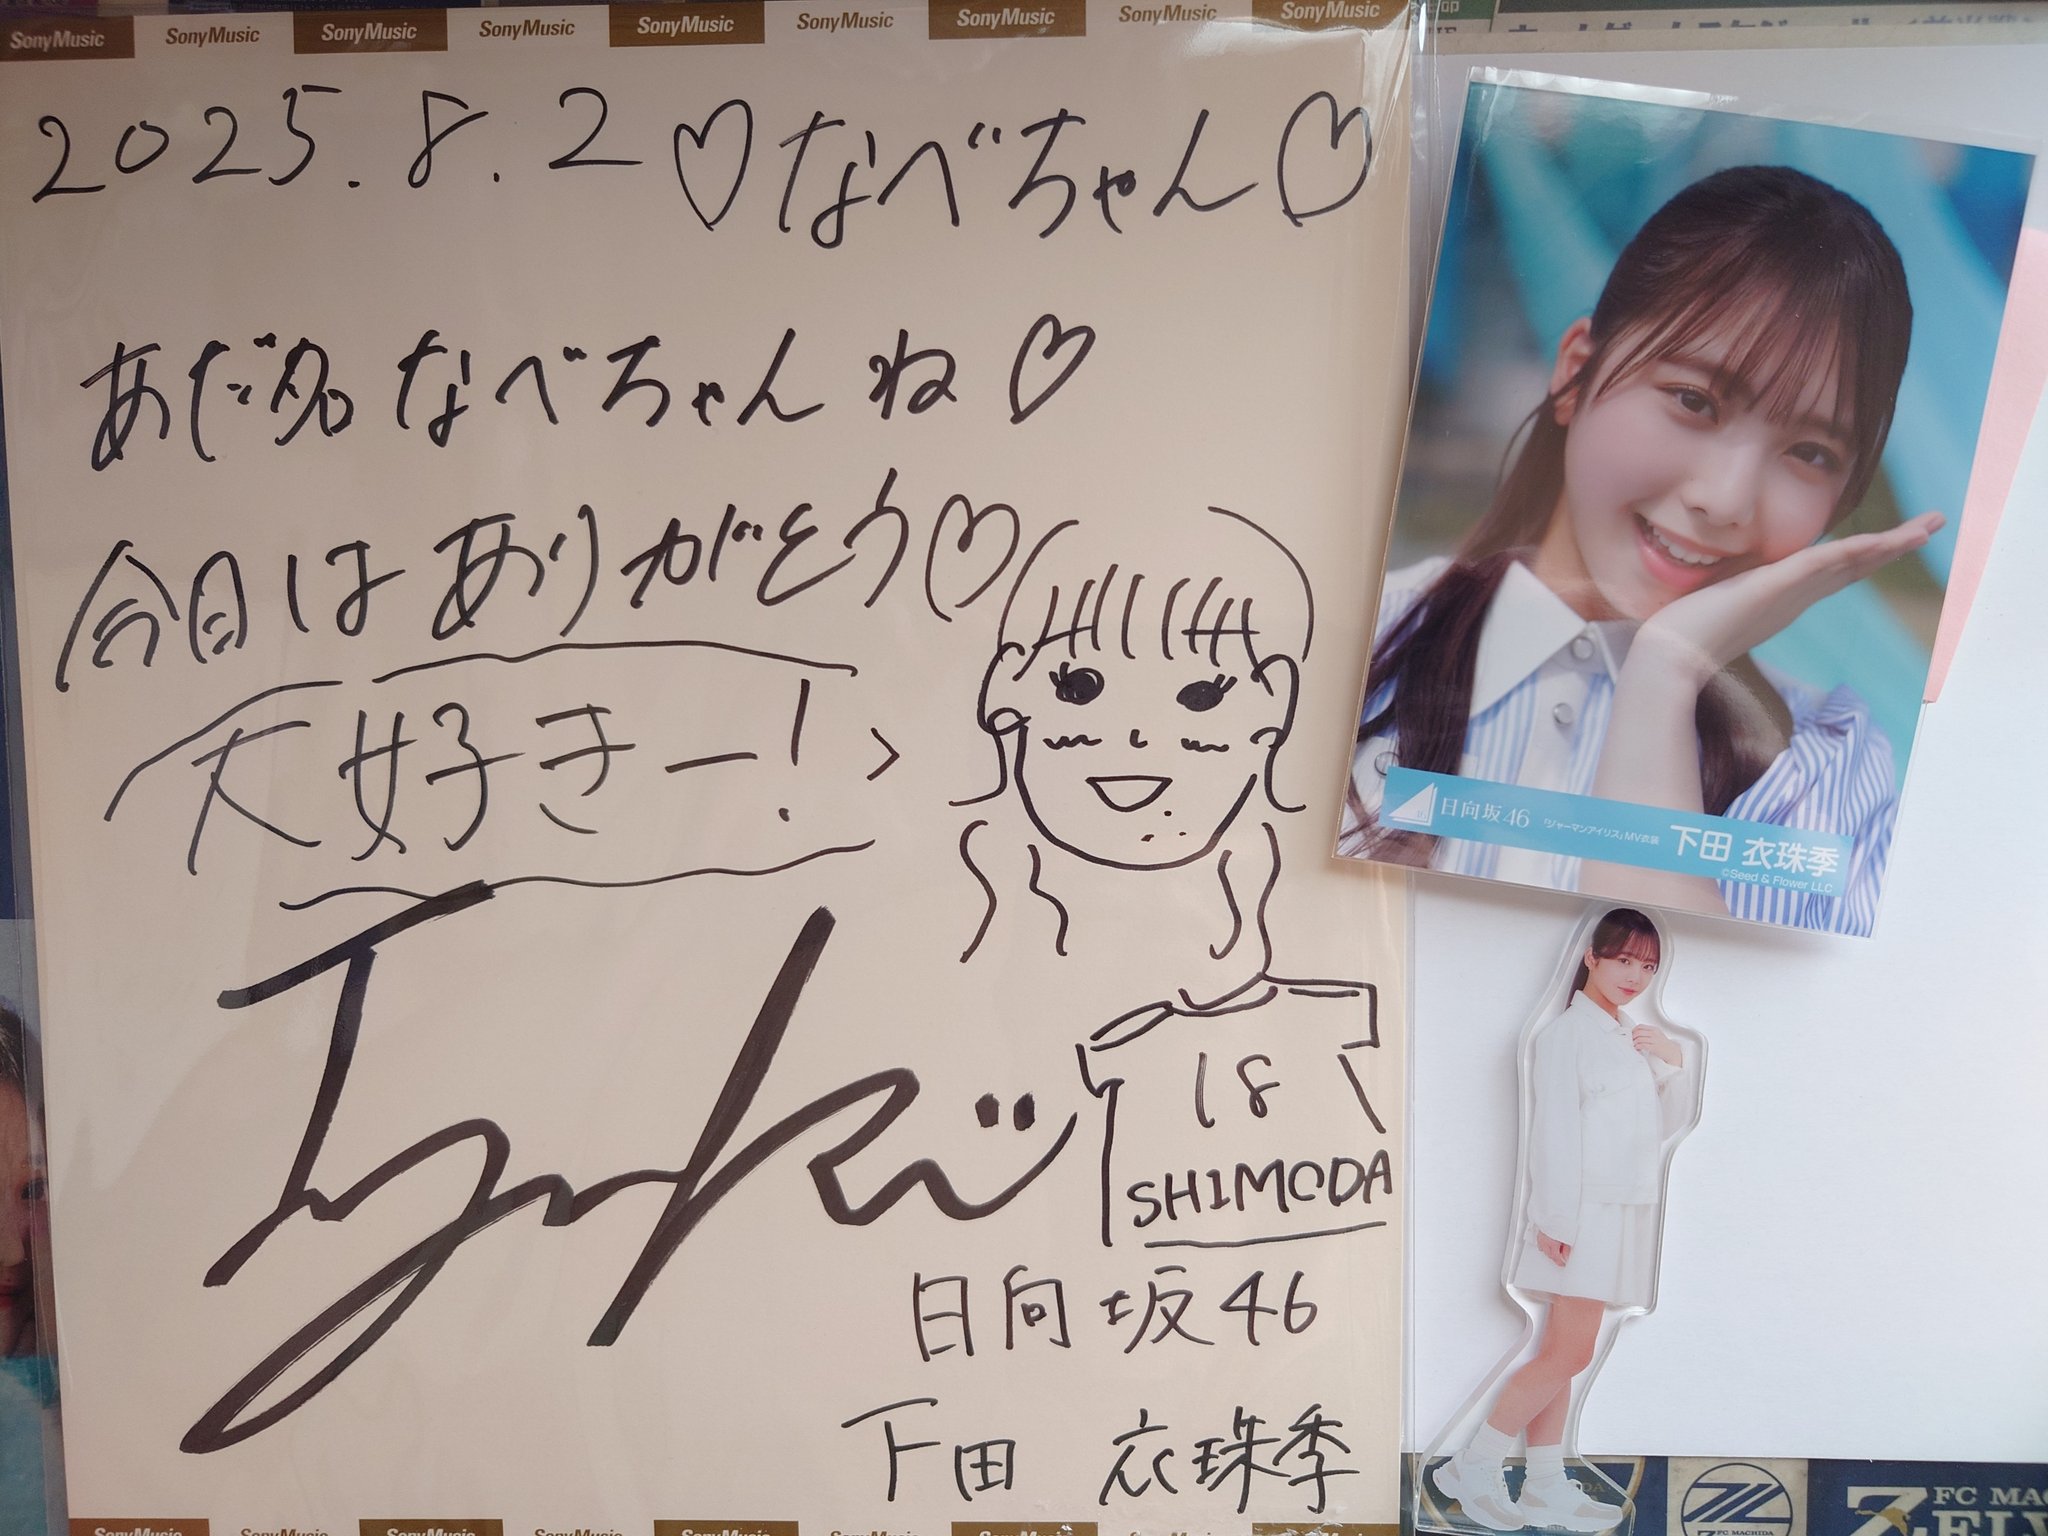 SonyMusic SonyMusic SonyMusic SonyMusic SonyMusic SonyMusic SonyMusic SonyMusic SonyMusic
2025.8.2♡なべちゃん♡
あだ名なべちゃんね♡
今日はありがとう♡
大好きー!
18
SHIMODA
日向坂46
下田 衣珠季
SonyMusic SonyMusic SonyMusic SonyMusic SonyMusic SonyMusic SonyMusic SonyMusic SonyMusic
日向坂46 『ジャーマンアイリス』MV衣装 下田 衣珠季
©Seed & Flower LLC
FC MACHIDA
FC MAC
ZELV